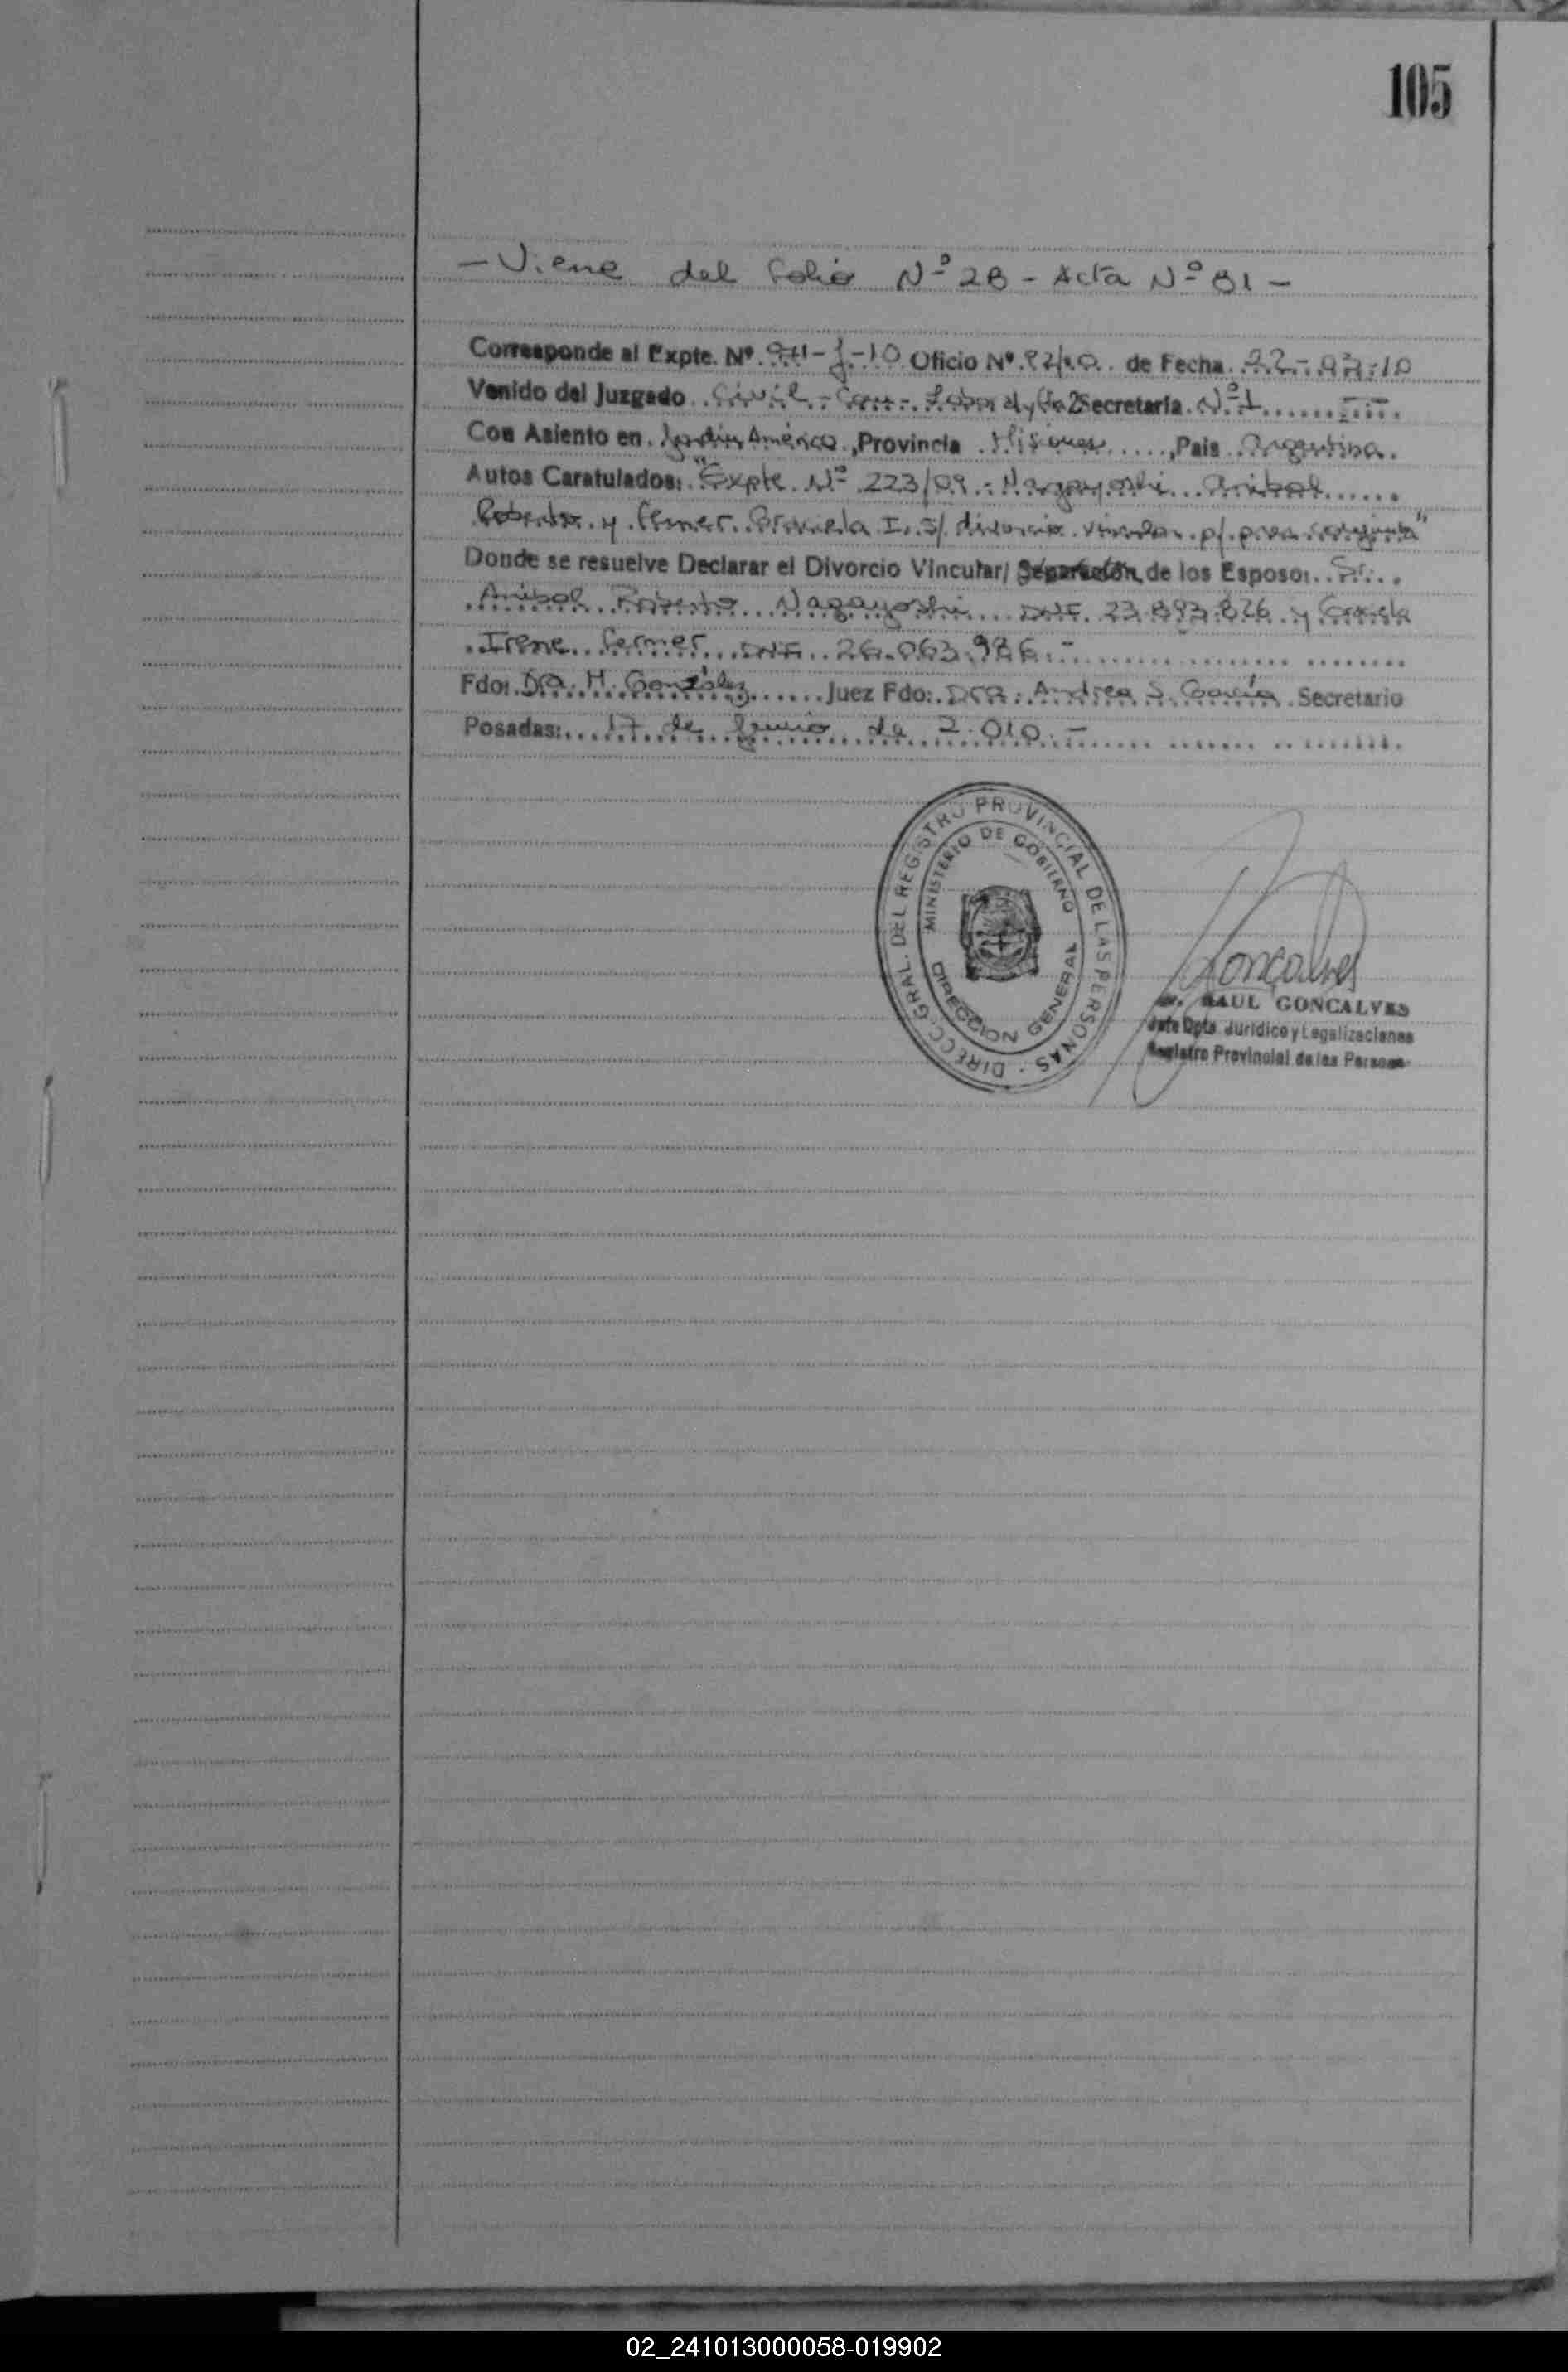 105
- Viene del folio Nº 28 - Acta Nº 81 -
Corresponde al Expte. Nº 911-J-10 Oficio Nº 82/10 de Fecha 22-02-10
Venido del Juzgado Civil - Com - Laboral y Secretaria Nº 1
Con Asiento en Jardín América, Provincia Misiones, Pais Argentina.
Autos Caratulados: "Expte Nº 223/09 - Nargayoshi Anibal
Roberto y Cerner Graciela I. S/ divorcio vincular p/ pres. conjunta"
Donde se resuelve Declarar el Divorcio Vincular/ Separación de los Esposo: Sr.
Anibal Roberto Nagayoshi DNI 23.893.826 y Graciela
Irene Cerner DNI 26.063.986.-
Fdo: Dra. M. González Juez Fdo: Dra. Andrea S. García Secretario
Posadas: 17 de Junio de 2.010.-
DIRECC. GRAL. DEL REGISTRO PROVINCIAL DE LAS PERSONAS
MINISTERIO DE GOBIERNO
DIRECCION GENERAL
Goncalves
RAUL GONCALVES
Jefe Dpto. Juridico y Legalizaciones
Registro Provincial de las Personas
02_241013000058-019902